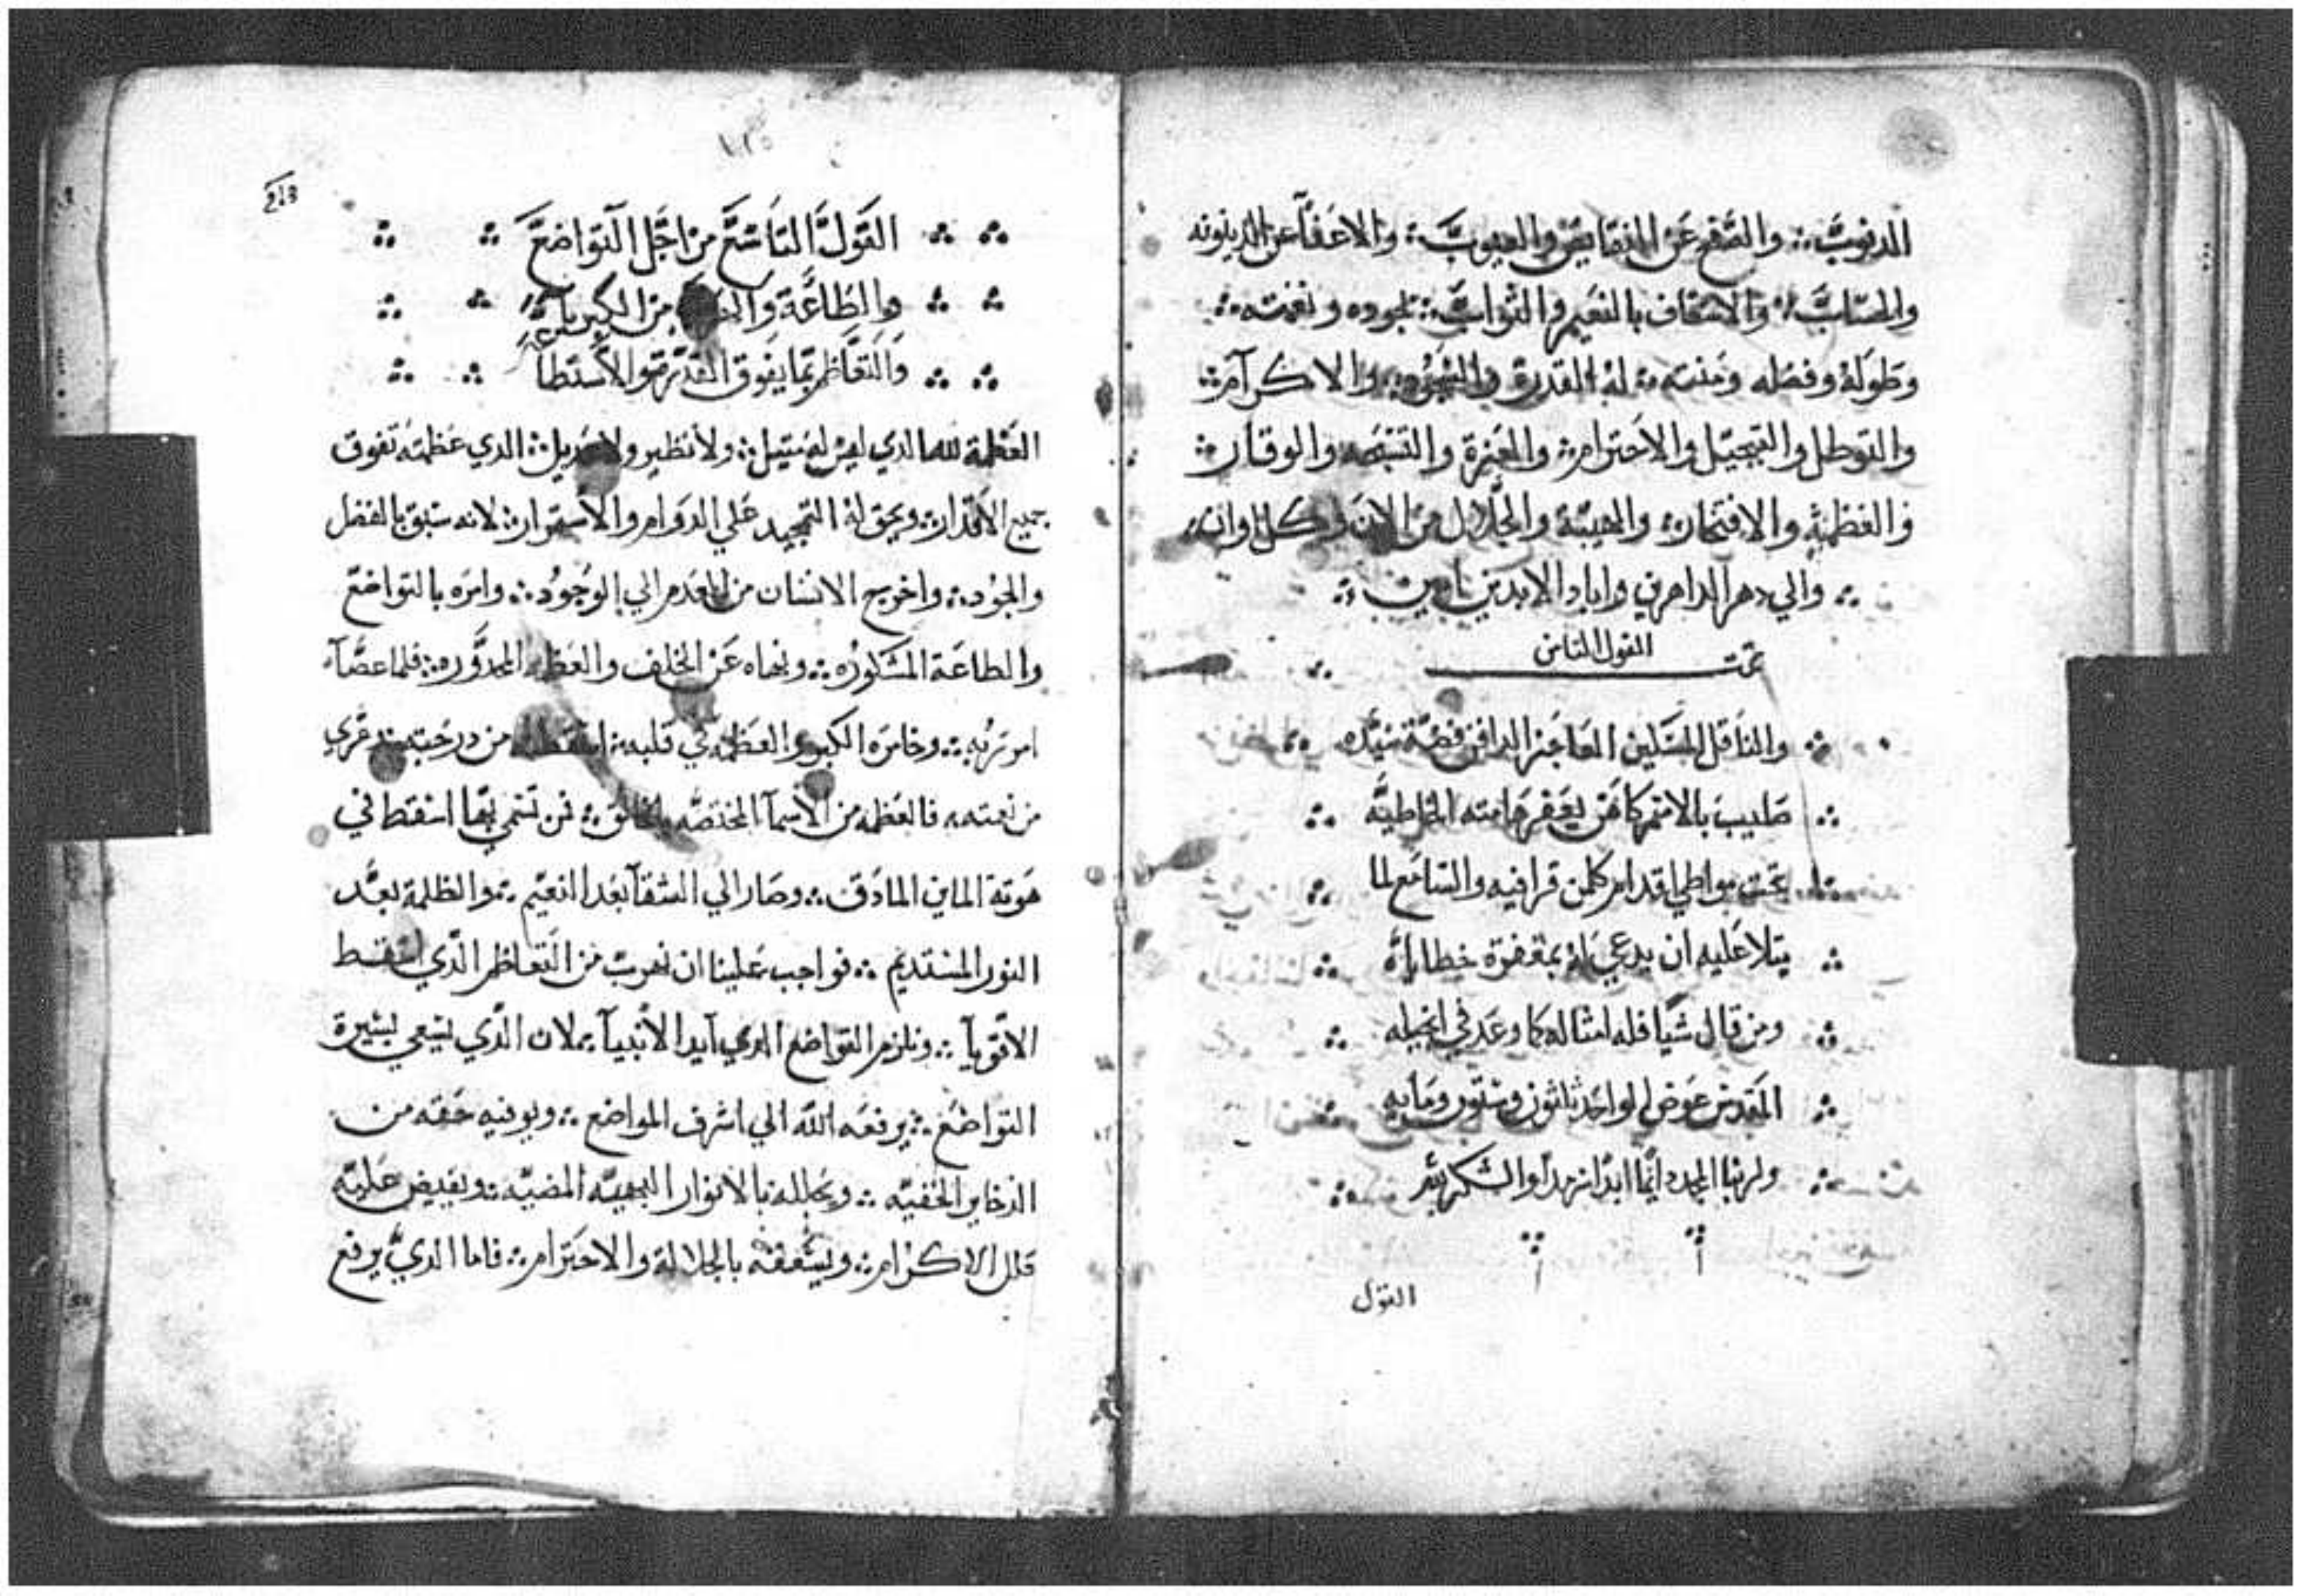 الدنوب ∴ والصفح عن النقايص والعيوب ∴ والاعفآ عن الدينونه
والاسعاف بالنعيم والثواب ∴ بجوده ونعمته ∴
وطوله وفضله ومنته ∴ له القدرة والاكرآم ∴
والتبجيل والاحترام ∴ والعزة والوقار ∴
والعظمة والافتخار ∴ والهيبة والجلال من الان وكل اوان ∴
∴ والي دهر الداهرين واباد الابدين امين ∴
تمت القول الثامن
∴ والناقل المسكين العاجز الدافن فضة سيده
∴ صليب بالاسم كاهن يغفر هامته الخاطيه ∴
∴ تحت مواطي اقدام كلمن قرا فيه والسامع لما ∴
∴ يتلا عليه ان يدعي له بمغفرة خطاياه ∴
∴ ومن قال شيا فله امثاله كما وعد في انجيله ∴
∴ المقدس عوض الواحد ثلثون وستون ومايه
∴ ولربنا المجد دايما ابدا سرمدا والشكر ∴
القول
218
∴ ∴ القول التاسع من اجل التواضع ∴ ∴
∴ ∴ والطاعة من الكبريآ ∴ ∴
∴ ∴ والتعاظم بما يفوق القدرة والاستطاعة ∴ ∴
العظمة لله الدي ليس له متيل ∴ ولا نظير ولا عديل ∴ الدي عظمته تفوق
جميع الاقدار ∴ ويحق له التمجيد علي الدوام والاستمرار ∴ لانه سبق بالفضل
والجود ∴ واخرج الانسان من العدم الي الوجود ∴ وامره بالتواضع
والطاعة المشكوره ∴ ونهاه عن الخلف والعظمه ∴ فلما عصآ
امر ربه ∴ وخامره الكبر والعظمه في قلبه ∴ اسقطه من درجته
من نعمته ∴ فالعظمه من الاسمآ المختصه بالخالق ∴ فمن تسمي بها اسقط في
هوتة ∴ وصار الي الشقآ بعد النعيم ∴ والظلمة بعد
النور ∴ فواجب علينا ان نهرب من التعاظم الدي اسقط
الاقويآ ∴ ونلزم التواضع الدي ايد الانبيآ ∴ لان الدي يسعي بسيرة
التواضع ∴ يرفعه الله الي اشرف المواضع ∴ ويوفيه حقه من
الدخاير الخفيه ∴ ويجلله بالانوار البهيه المضيه ∴ ويفيض عليه
حلل الاكرام ∴ بالجلالة والاحترام ∴ فاما الدي يرفع